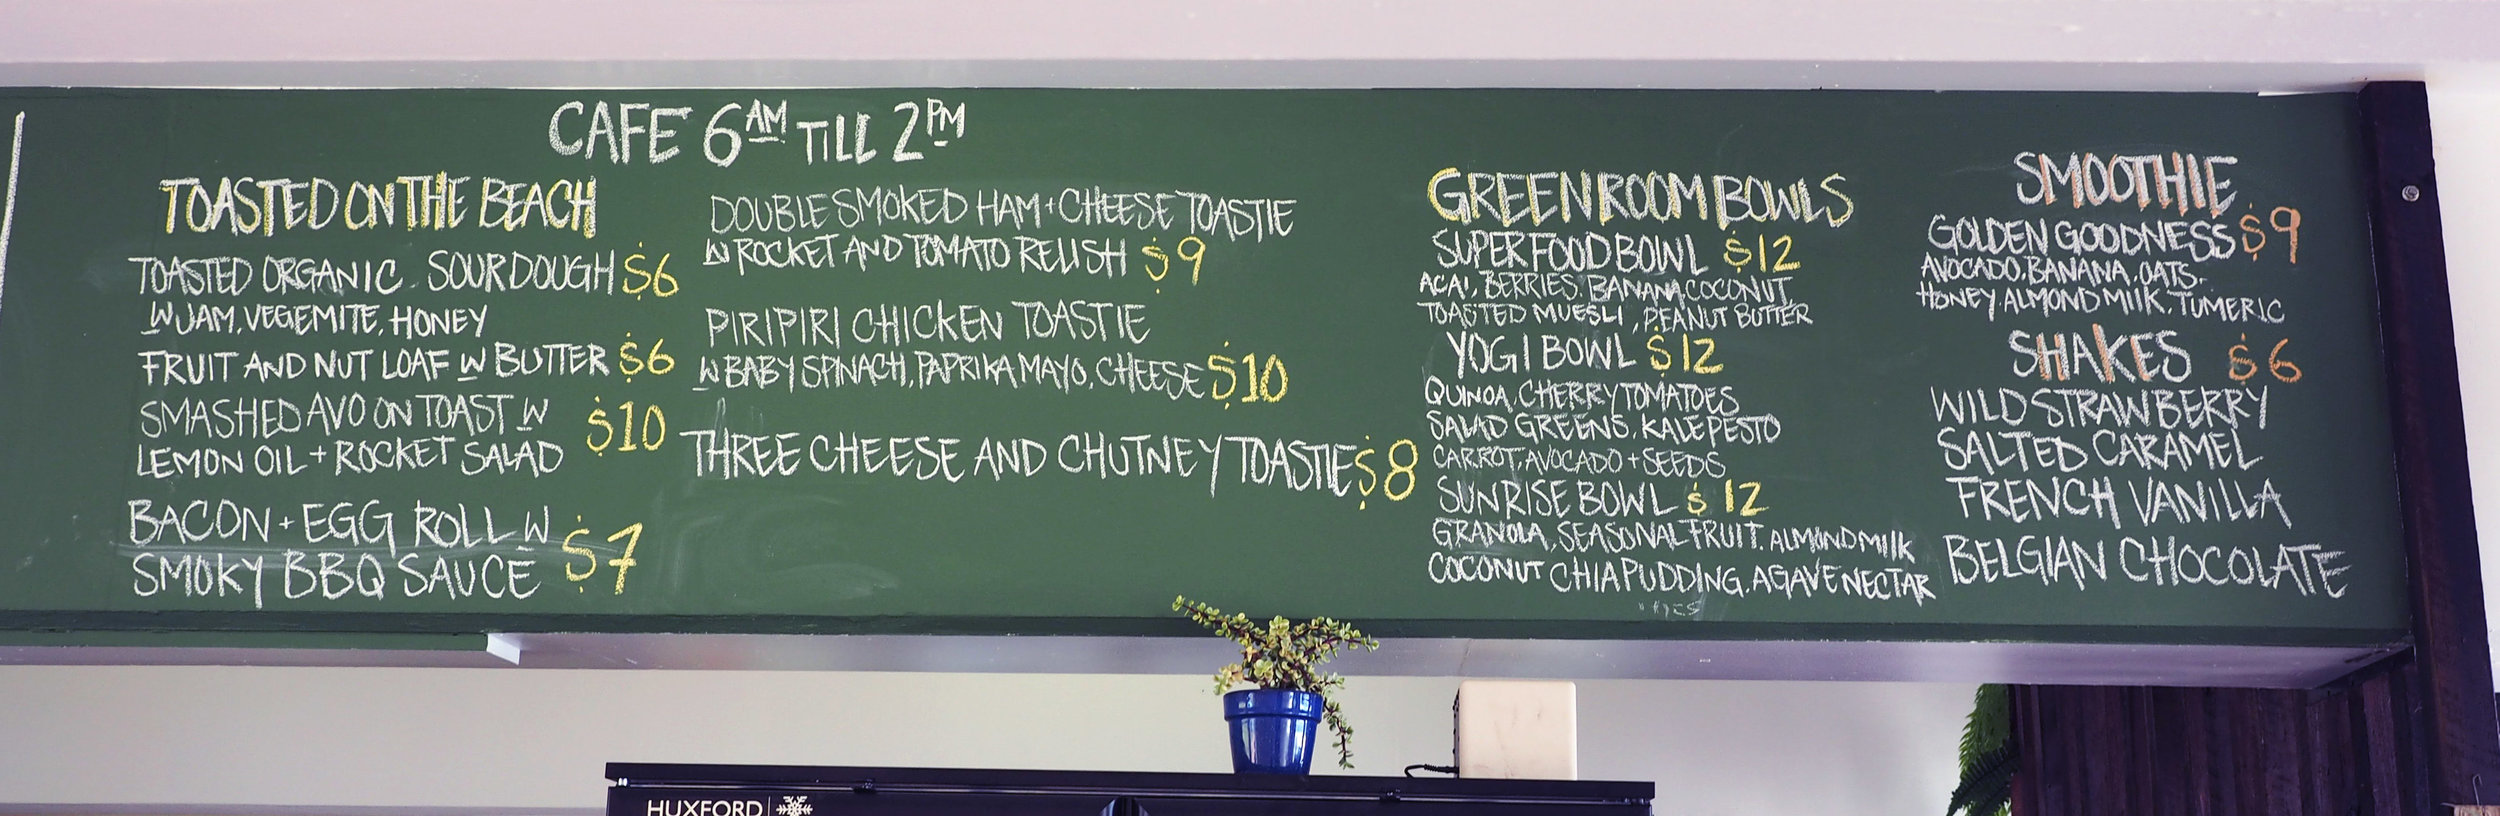 CAFE 6AM TILL 2PM
TOASTED ON THE BEACH
TOASTED ORGANIC SOURDOUGH $6
W JAM, VEGEMITE, HONEY
FRUIT AND NUT LOAF W BUTTER $6
SMASHED AVO ON TOAST W
LEMON OIL + ROCKET SALAD $10
BACON + EGG ROLL W
SMOKY BBQ SAUCE $7
DOUBLE SMOKED HAM + CHEESE TOASTIE
W ROCKET AND TOMATO RELISH $9
PIRIPIRI CHICKEN TOASTIE
W BABY SPINACH, PAPRIKA MAYO, CHEESE $10
THREE CHEESE AND CHUTNEY TOASTIE $8
GREENROOM BOWLS
SUPERFOOD BOWL $12
ACAI, BERRIES, BANANA, COCONUT
TOASTED MUESLI, PEANUT BUTTER
YOGI BOWL $12
QUINOA, CHERRY TOMATOES
SALAD GREENS, KALE PESTO
CARROT, AVOCADO + SEEDS
SUNRISE BOWL $12
GRANOLA, SEASONAL FRUIT, ALMOND MILK
COCONUT CHIA PUDDING, AGAVE NECTAR
SMOOTHIE
GOLDEN GOODNESS $9
AVOCADO, BANANA, OATS,
HONEY, ALMOND MILK, TUMERIC
SHAKES $6
WILD STRAWBERRY
SALTED CARAMEL
FRENCH VANILLA
BELGIAN CHOCOLATE
HUXFORD